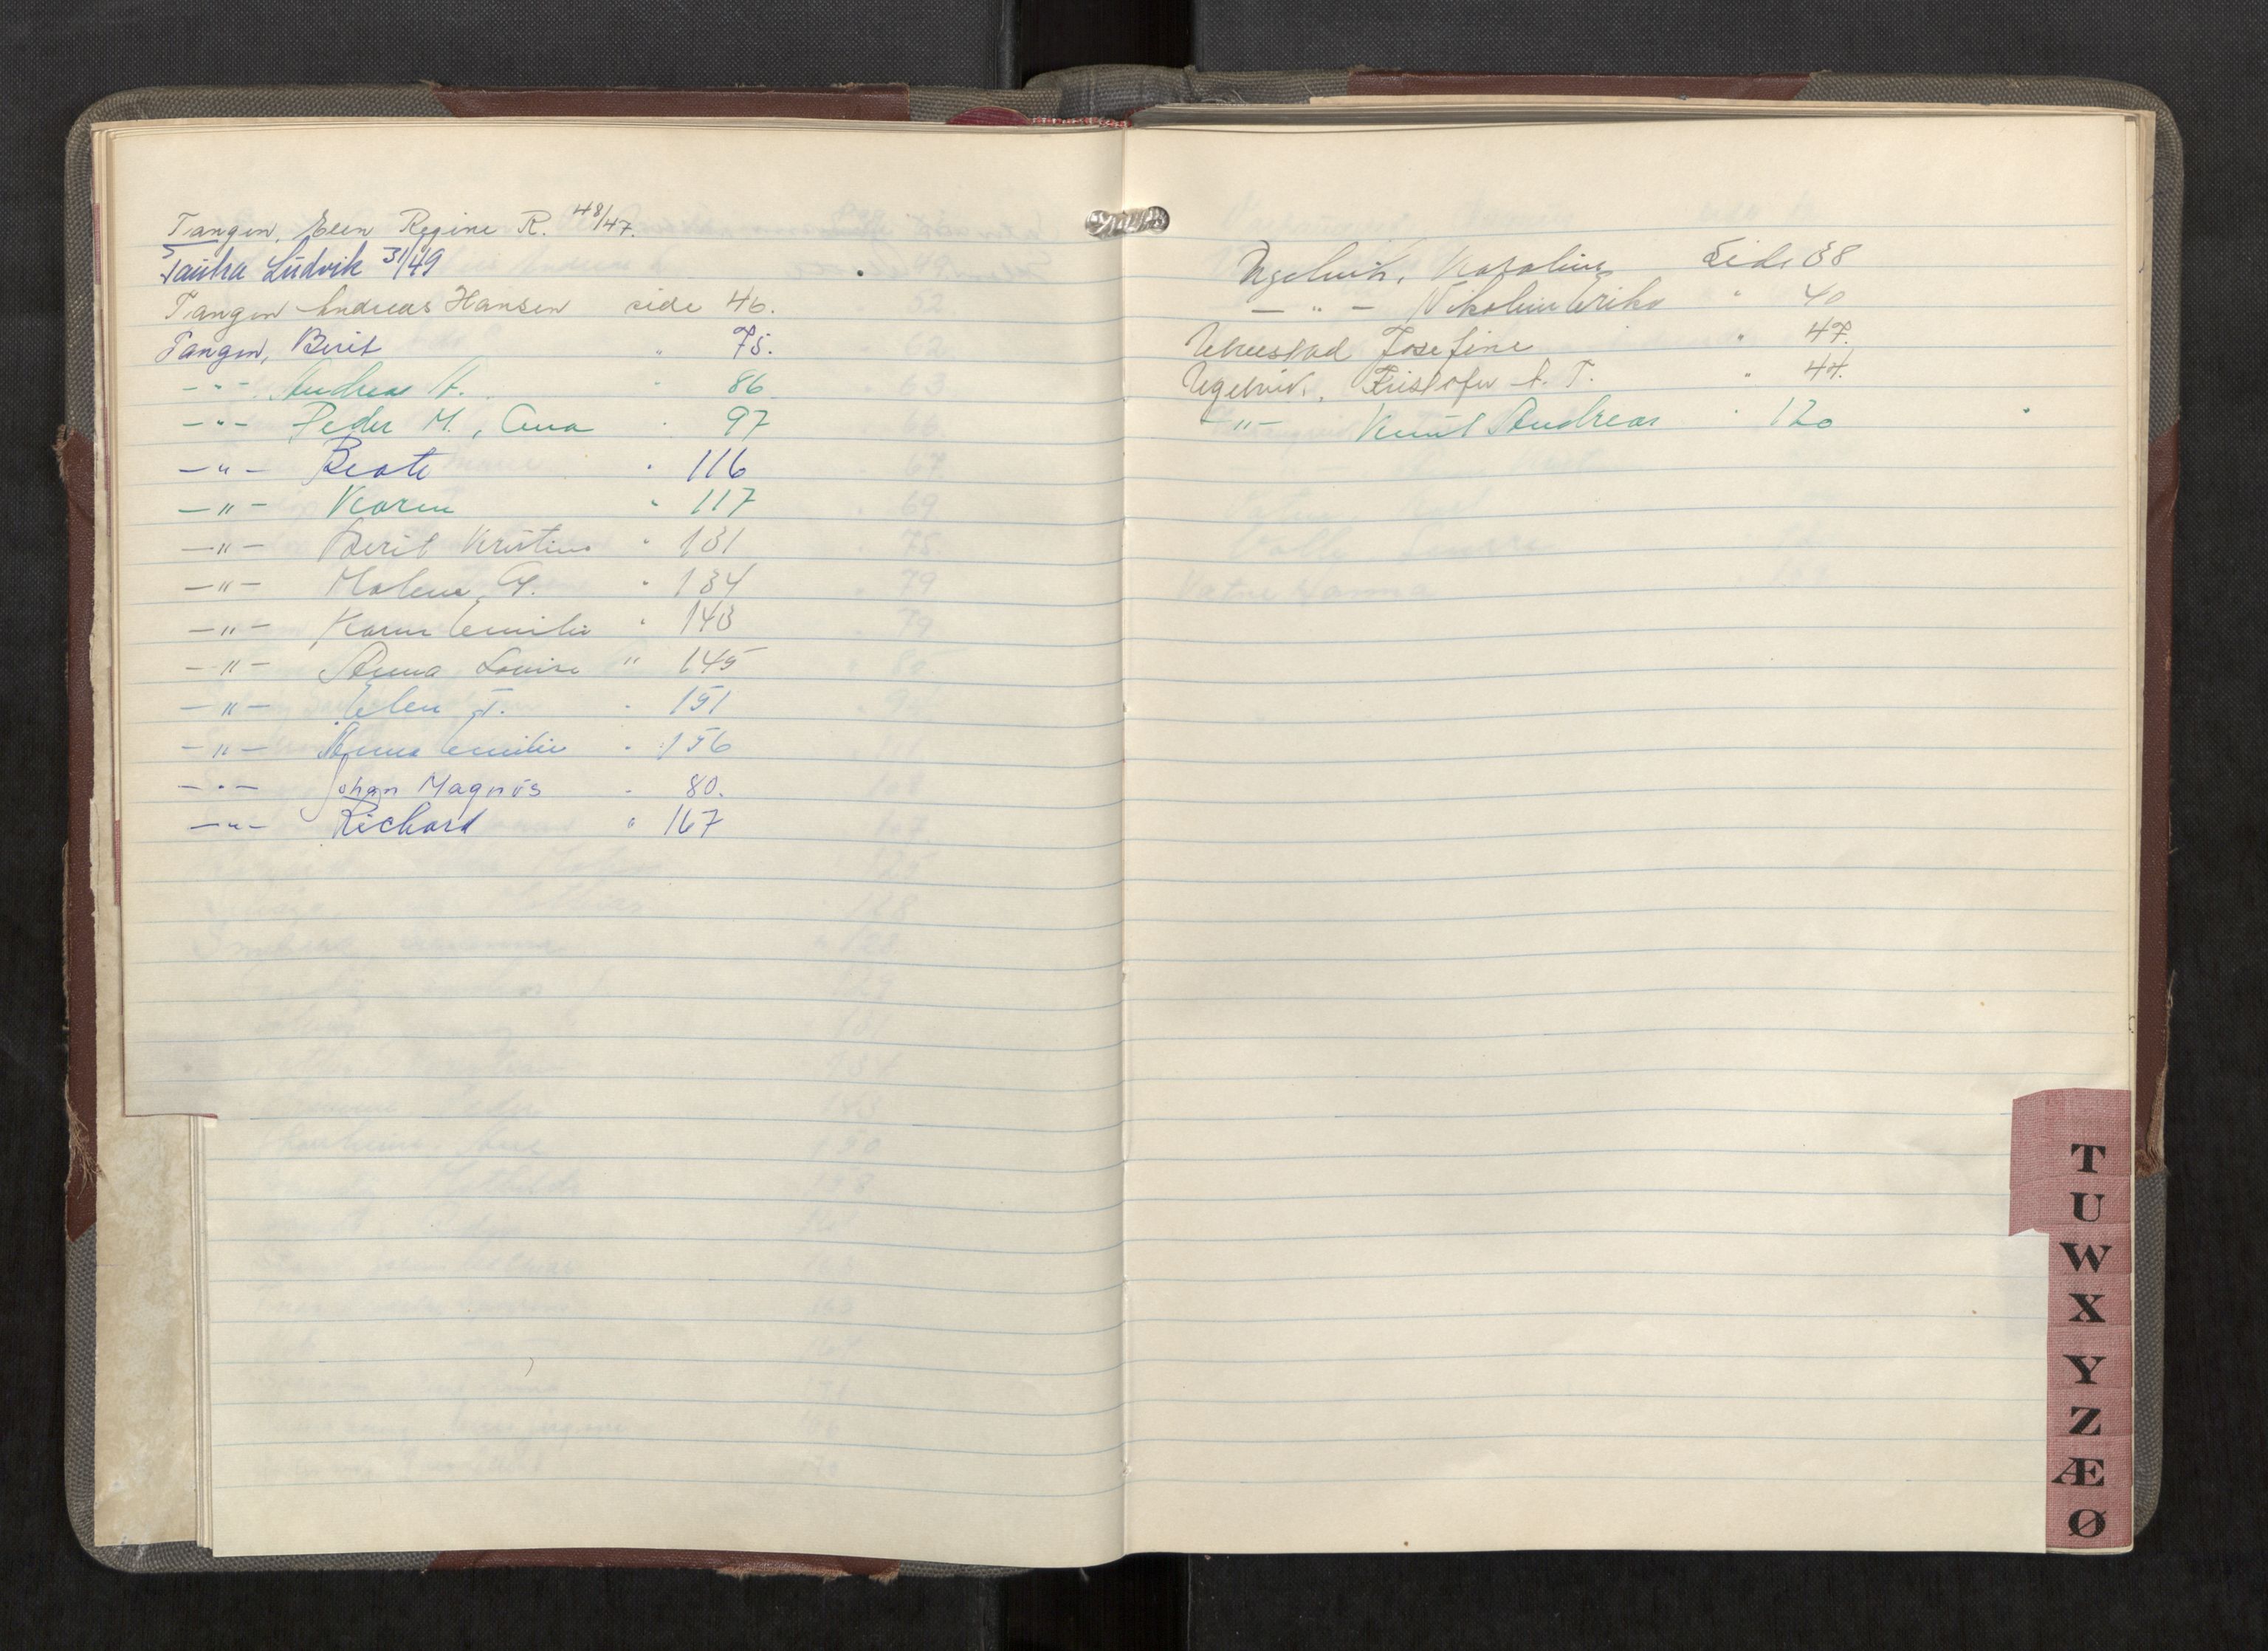 Tangen, Elen Regine R. 48/47.
Tautra Ludvik 31/49
Tangen Andreas Hansen side 46.
Tangen, Berit " 75.
- " - Andreas A. " 86
- " - Peder M., Anna " 97
- " - Beate " 116
- " - Karen " 117
- " - Berit Kristine " 131
- " - Malene G. " 134
- " - Karen Emilie " 143
- " - Anna Louise " 145
- " - Elen T. " 151
- " - Anna Emilie " 156
- " - Johan Magnus " 80.
- " - Richard " 167
Ugelvik, Karoline Side 38
- " - Nikoline Erika " 40
Ulvestad Josefine " 47.
Ugelvik, Kristofer A. T. " 44.
- " - Knut Andreas " 120
T
U
W
X
Y
Z
Æ
Ø